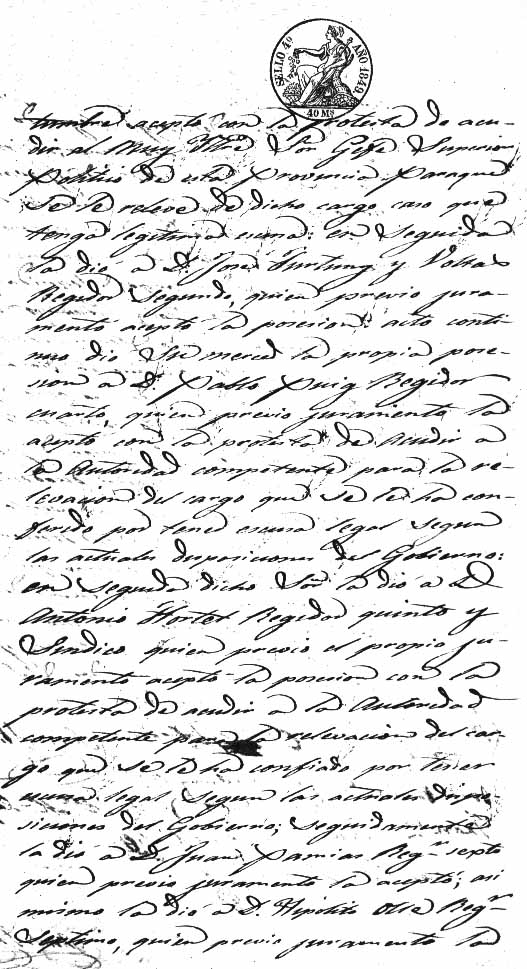 SELLO 4º AÑO 1849.
40 Ms
acepto con la protesta de acu-
dir al Muy Iltre Sor Gefe Superior
Politico de esta Provincia paraque
se le releve de dicho cargo caso que
tenga legitima escusa: en seguida
la dio á D. José Furtuny y Voltas
Regidor Segundo, quien previo jura-
mento acepto la posesion: acto conti-
nuo dio Su merced la propia pose-
sion a D. Pablo Puig Regidor
cuarto, quien previo juramento la
acepto con la protesta de acudir a
la Autoridad competente para la re-
levacion del cargo que se le ha con-
ferido por tener escusa legal segun
las actuales disposiciones del Gobierno:
en seguida dicho Sor la dió a D.
Antonio Hortet Regidor quinto y
Sindico quien previo el propio ju-
ramento aceptó la posesion con la
protesta de acudir a la Autoridad
competente para la relevacion del car-
go que se le ha confiado por tener
escusa legal segun las actuales dispo-
siciones del Gobierno; seguidamente
la dió a D. Juan Pamias Regr sexto
quien previo juramento la aceptó; asi
mismo la dió a D. Hipolito Regr
Septimo, quien previo juramento la